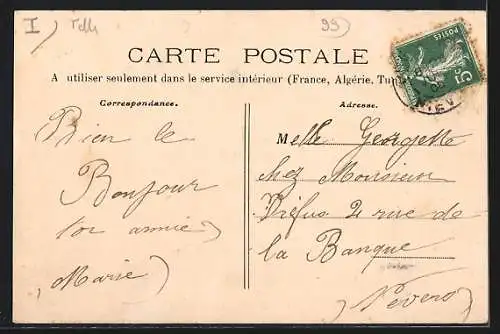 I) Telle
99)
CARTE POSTALE
A utiliser seulement dans le service intérieur (France, Algérie, Tun
POSTES
5c
Correspondance.
Adresse.
Bien le
Bonjour
ton amie
Marie)
Melle Georgette
chez Monsieur
Dréfus 2 rue de
la Banque
Nevers)